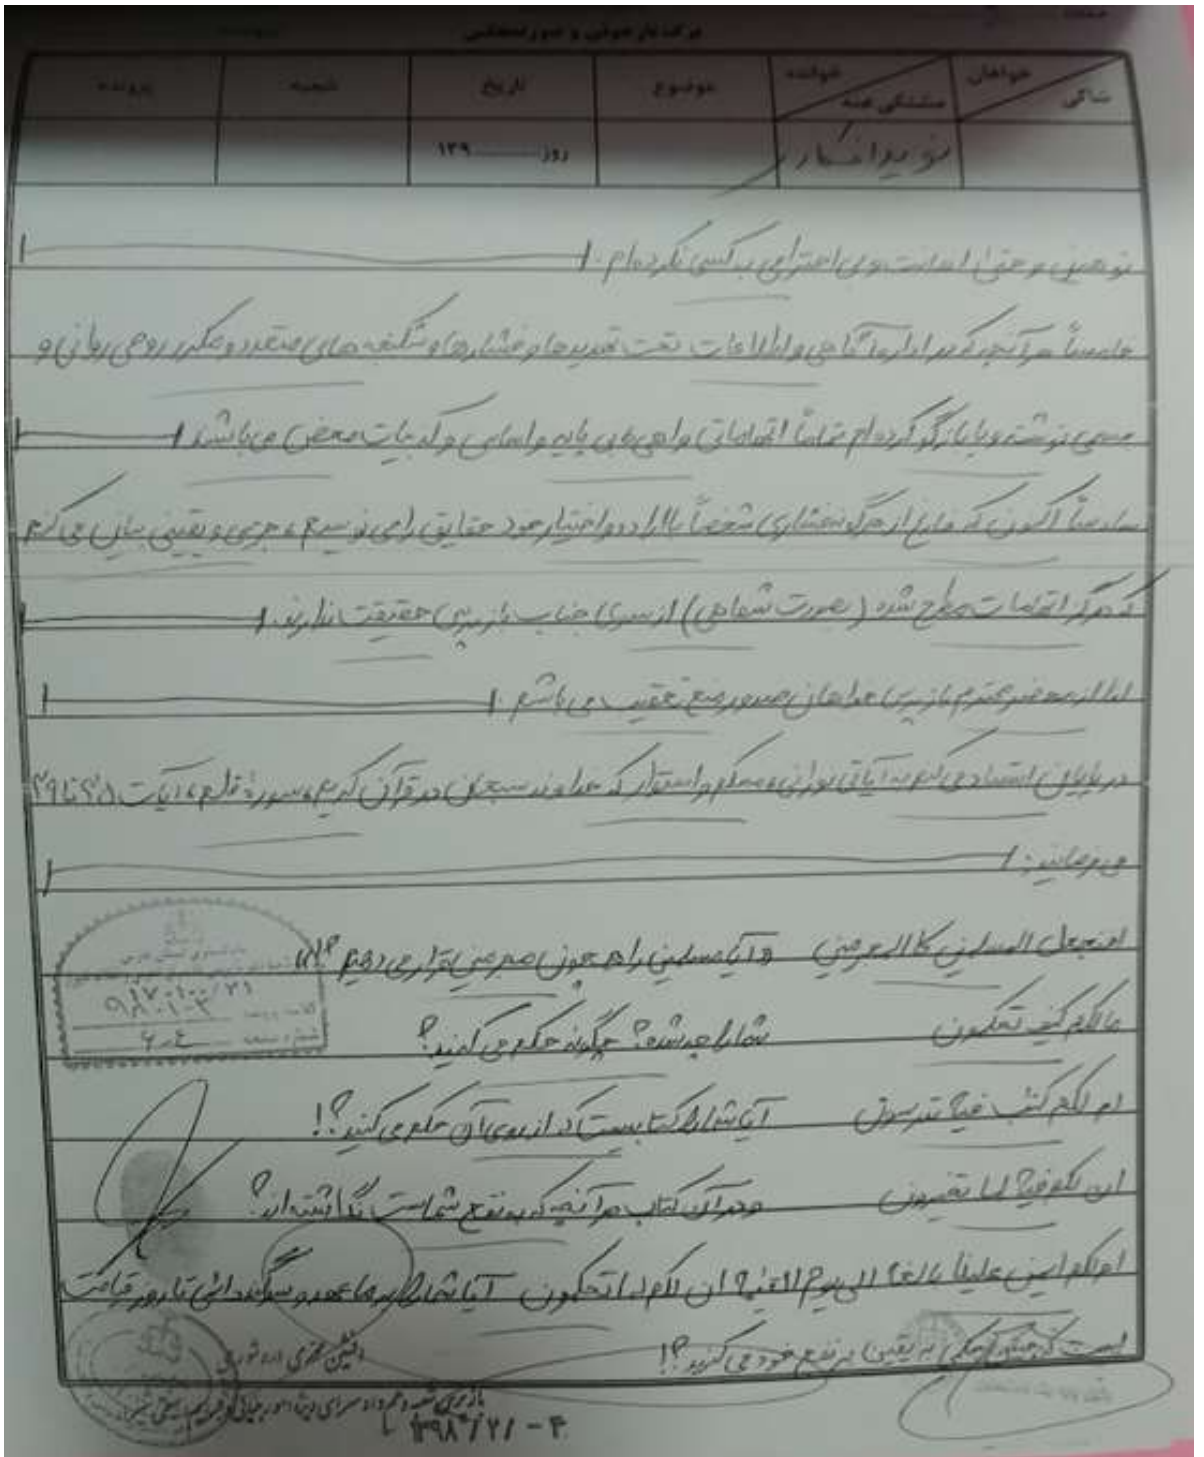 برگ بازجوئی و صورتمجلس
خواهان شاکی خوانده مشتکی عنه موضوع تاریخ شعبه پرونده
نوید افکاری روز ۱۳۹
توهینی و حتی اهانت و بی احترامی به کسی نکرده‌ام.
خامساً هر آنچه که در اداره آگاهی و اطلاعات تحت تهدیدها و فشارها و شکنجه های متعدد و مکرر روحی روانی و
جسمی نوشته و یا بازگو کرده‌ام تماماً اتهاماتی واهی بی پایه و اساس و کذبیات محض می‌باشد
سادساً اکنون که فارغ از هرگونه فشاری شخصاً با اراده و اختیار خود حقایق را می نویسم، جزمی و یقینی بیان می کنم
که هرگز اتهامات مطرح شده (بصورت شفاهی) از سوی جناب بازپرس حقیقت ندارند.
لذا از محضر محترم بازپرسی خواهان صدور منع تعقیب می باشم.
در پایان استناد می کنم به آیاتی نورانی، محکم و استوار که خداوند سبحان در قرآن کریم، سورۀ قلم، آیات ۳۵ تا ۳۹
می فرمایند:
افنجعل المسلمین کالمجرمین و آیا مسلمین را همچون مجرمین قرار می دهیم؟!!
مالکم کیف تحکمون شما را چه شده؟ چگونه حکم می کنید؟
ام لکم کتٰب فیه تدرسون آیا شما را کتابیست که از روی آن حکم می کنید؟!
ان لکم فیه لما تخیرون و در آن کتاب هر آنچه که به نفع شماست نگاشته اند؟
ام لکم ایمن علینا بالغه الی یوم القیمه ان لکم لما تحکمون آیا شما را بر ما عهد و سوگندهائی تا روز قیامت
است که به یقین بر نفع خود می کنید؟!
۴ - ۲ / ۱۳۹۸